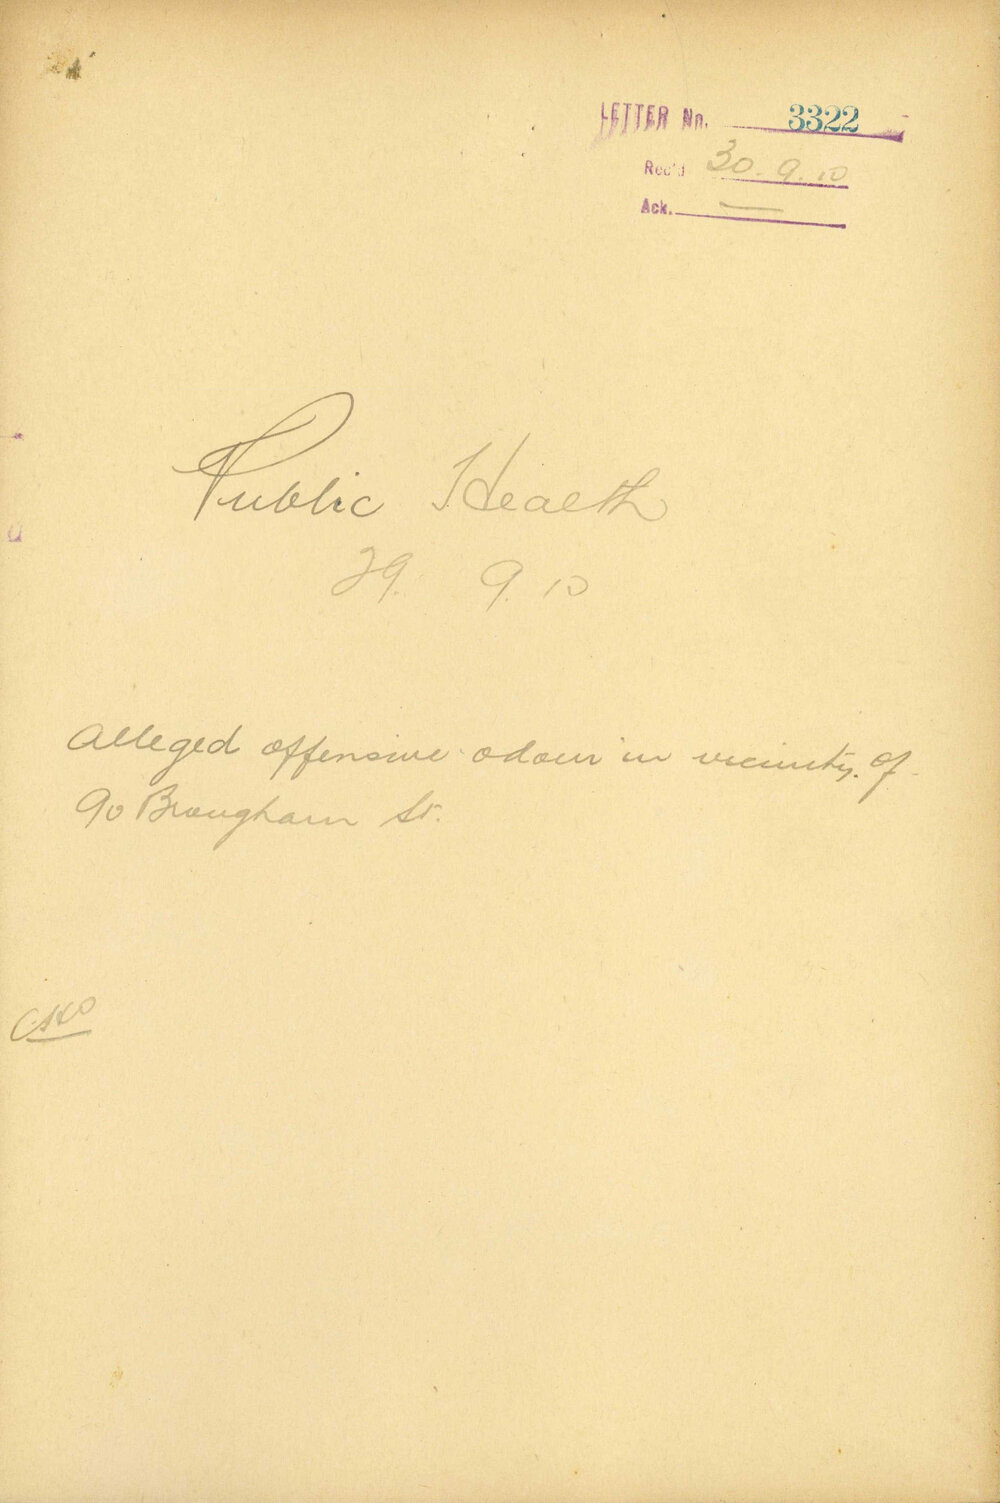 LETTER No. 3322
Rec'd 30.9.10
Ack. —
Public Health
29. 9. 10
Alleged offensive odour in vicinity of
90 Brougham St.